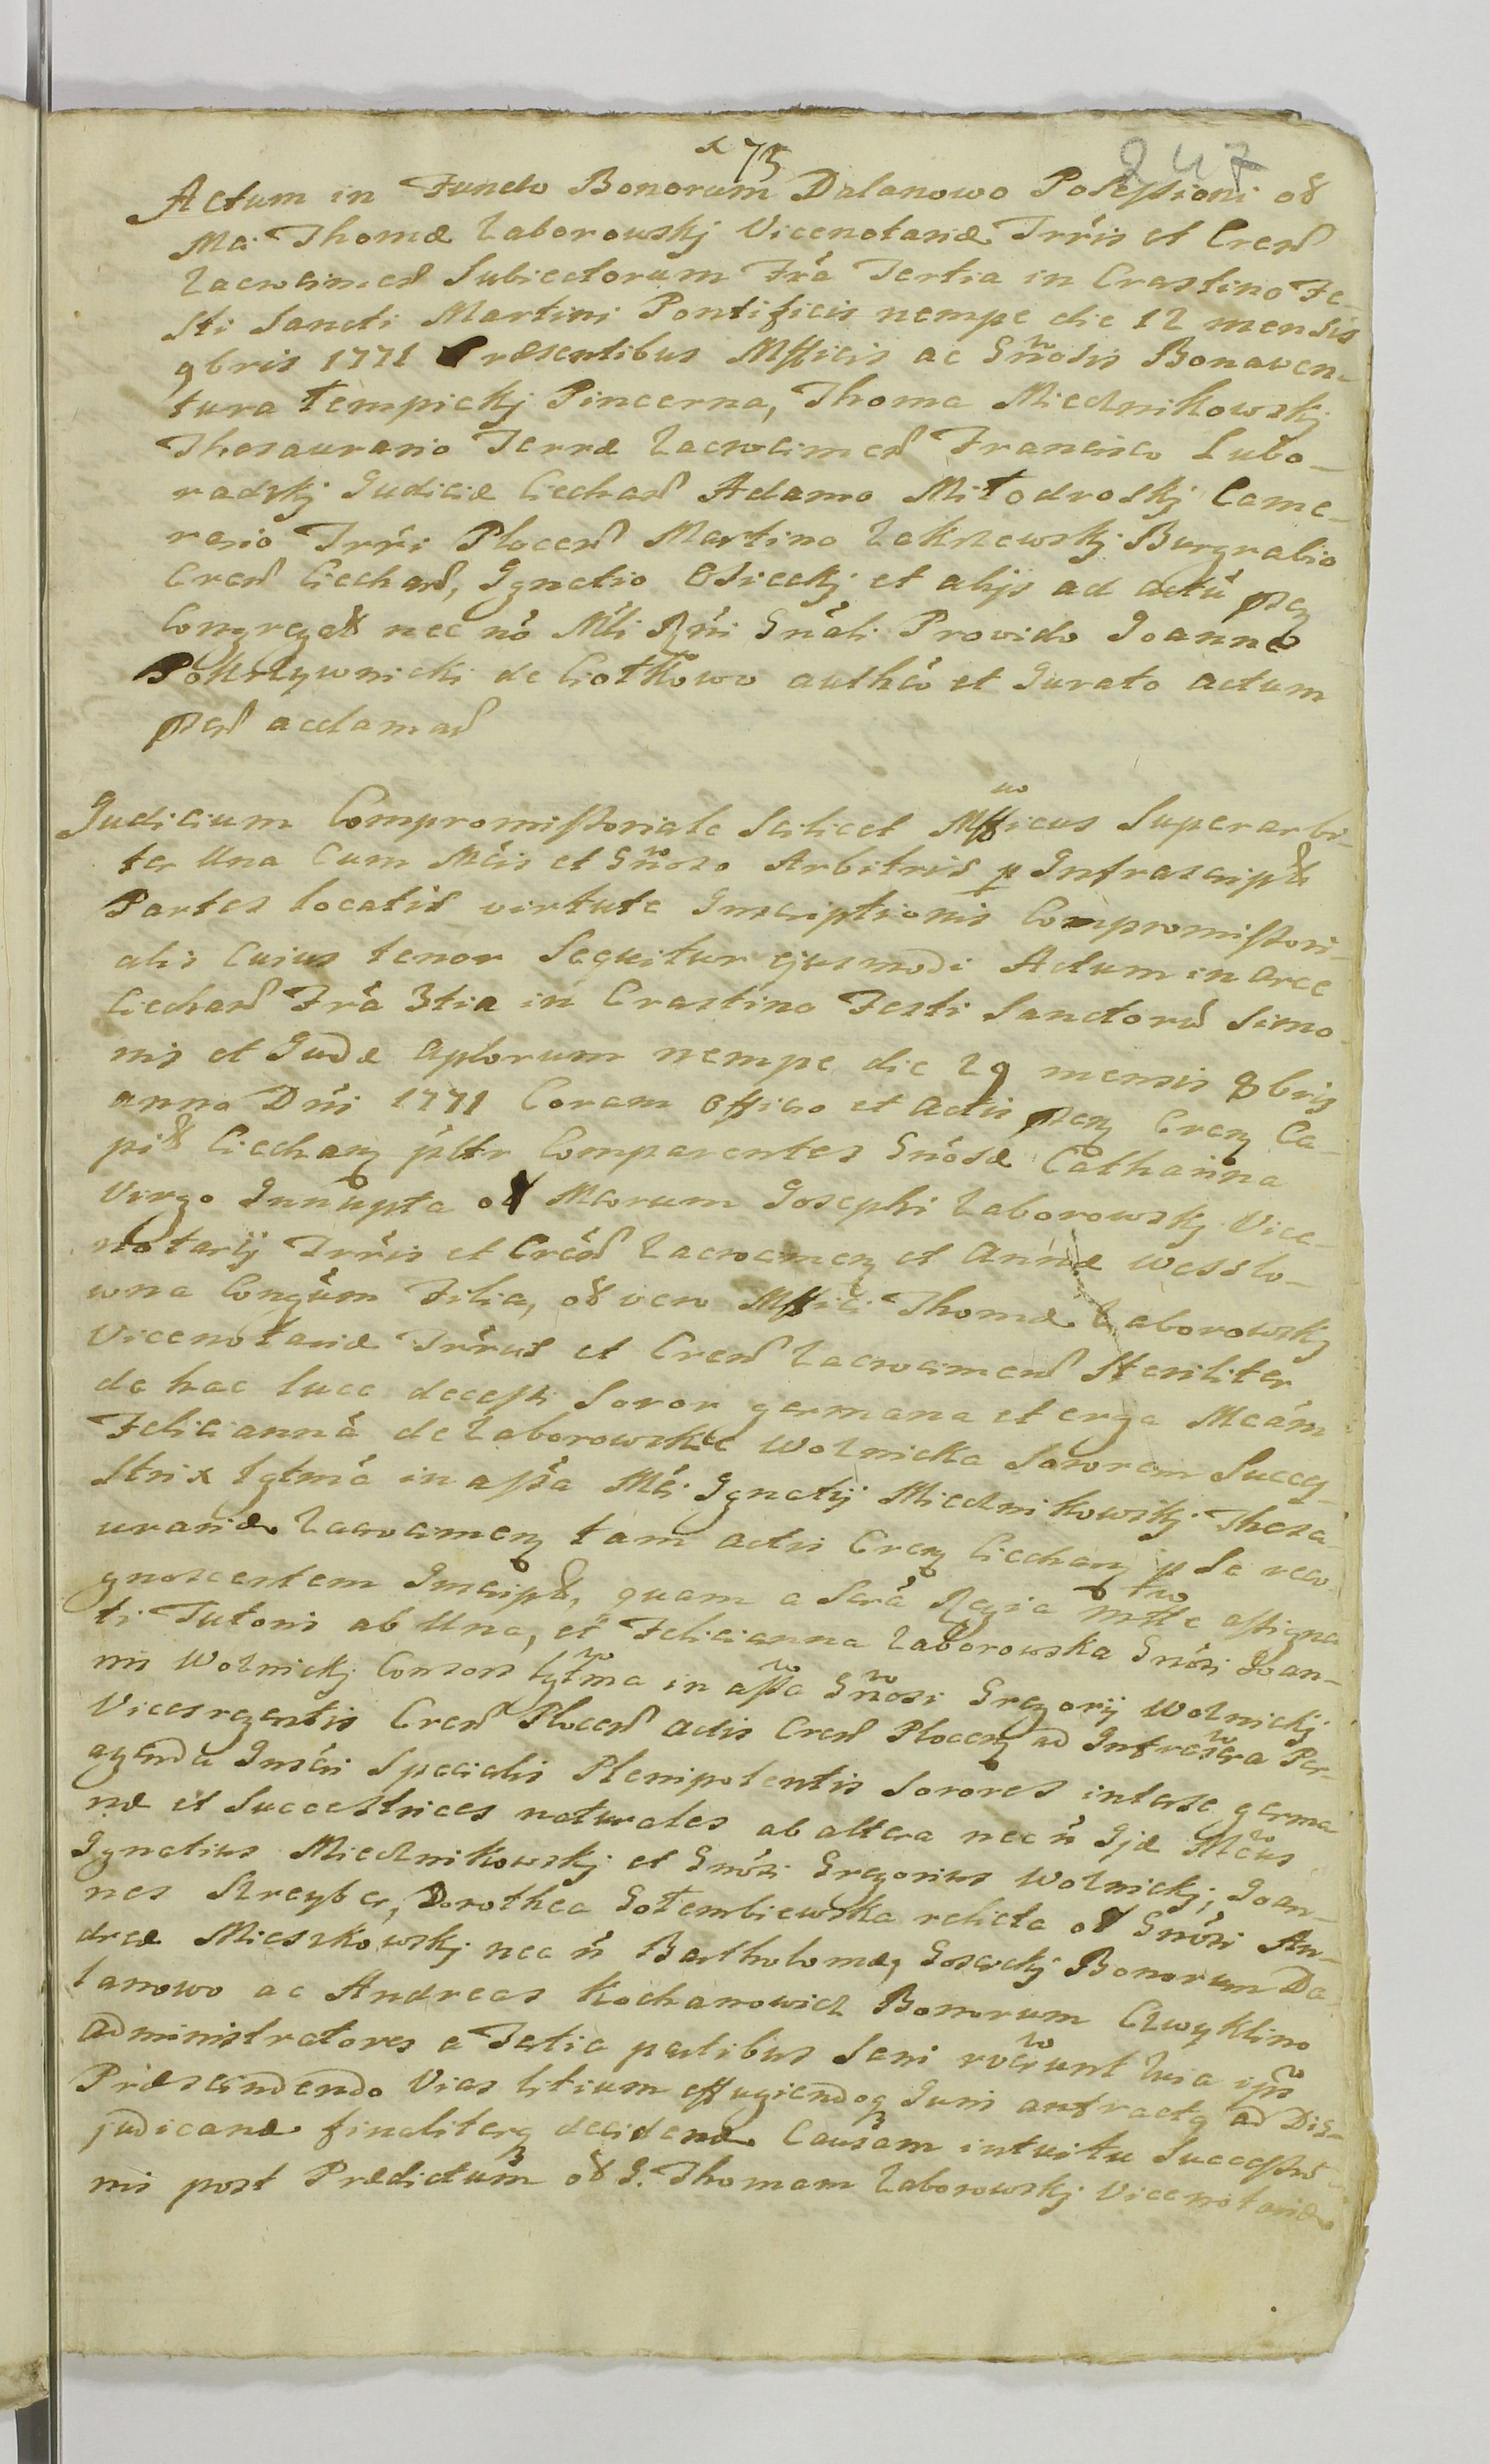 75
247
Actum in Fundo Bonorum Dalanowo Posessioni od
Mci Thomæ Zaborowskj Vicenotariæ Trris et Cren
Zacrocimen Subiectorum Fra Tertia in Crastino Fe-
sti Sancti Martini Pontificis nempe die 12 mensis
9bris 1771 Præsentibus Mfficis ac Gnosis Bonawen-
tura Łempickj Pincerna, Thoma Miecznikowskj
Thesaurario Terræ Zacrocimen Francisco Lubo-
radzkj Judiciæ Ciechan Adamo Miłodroskj Came-
rario Trri Plocen Martino Zakrzewskj Burgrabio
Cren Ciechan, Ignatio Osieckj et alijs ad actu
Congregat nec no Mti Rni Gnali Provido Joanne
Pokrzywnicki de Ciołkowo authco et Jurato actum
acclaman
Judicium Compromissoriale Scilicet Mfficus Superarbi-
ter Una Cum Mcis et Gnoso Arbitris p Infrascript
Partes locatis virtute Inscriptionis Compromissori-
alis Cuius tenor Sequitur ejusmodi Actum in arce
Ciechan Fra 3tia in Crastino Festi Sanctoru Simo-
nis et Judæ aplorum nempe die 29 mensis 8bris
anno Dni 1771 Coram officio et actis Cren Ca-
pit Ciechan pltr Comparentes Gnosæ Catharina
Virgo Innupta od Mcorum Josephi Zaborowskj Vice-
notarij Trris et Cren Zacrocimen et Annæ Wesslo-
wna Congum Filia, od vero Mffici Thomæ Zaborowskj
Vicenotariæ Trrus et Cren Zacrocimen Steriliter
de hac luce decessi Soror germana et erga Mcam
Felicianna de Zaborowskie Woznicka Sororem Succes-
strix lgtma in assa Mci Ignatij Miecznikowskj Thesa-
urariæ Zacrocimen tam actis Cren Ciechan p Se reco-
gnoscentem Inscript, quam a Scra Regia Mtte assigna
ti Tutoris ab Una, et Felicianna Zaborowska Gnosi Joan-
nis Woznickj Consors lgtma in assa Gnosi Gregorij Woznickj
Vicesregentis Cren Plocen actis Cren Plocen ad Infrascra Per-
agenda Inscri Specialis Plenipotentis Sorores interse germa
næ et Successtrices naturales ab altera nec n Ijdæ Mcus
Ignatius Miecznikowskj et Gnosi Gregorius Woznickj, Joan-
nes Streyber, Dorothea Gołembiewska relicta od Gnosi An-
dreæ Mieszkowskj nec n Bartholomæ, Bonorum Da-
lanowo ac Andreas Kochanowicz Bonorum Czwyklino
administratores a Tertia partibus Sani
Præscindendo Vias litium effugiendoq Juris anfractq ad Dis-
judicanæ finaliterq decidenæ Causam intuitu Successio-
nis post Prædictum od G. Thomam Zaborowskj Vicenotariæ